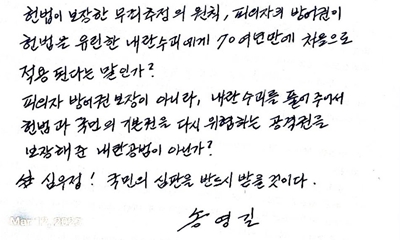 헌법이 보장한 무죄추정의 원칙, 피의자의 방어권이
헌법을 유린한 내란수괴에게 70여년만에 처음으로
적용된다는 말인가?
피의자 방어권 보장이 아니라, 내란수괴를 풀어주어서
헌법과 국민의 기본권을 다시 위협하는 공격권을
보장해준 내란공범이 아닌가?
심우정! 국민의 심판을 반드시 받을 것이다.
송영길